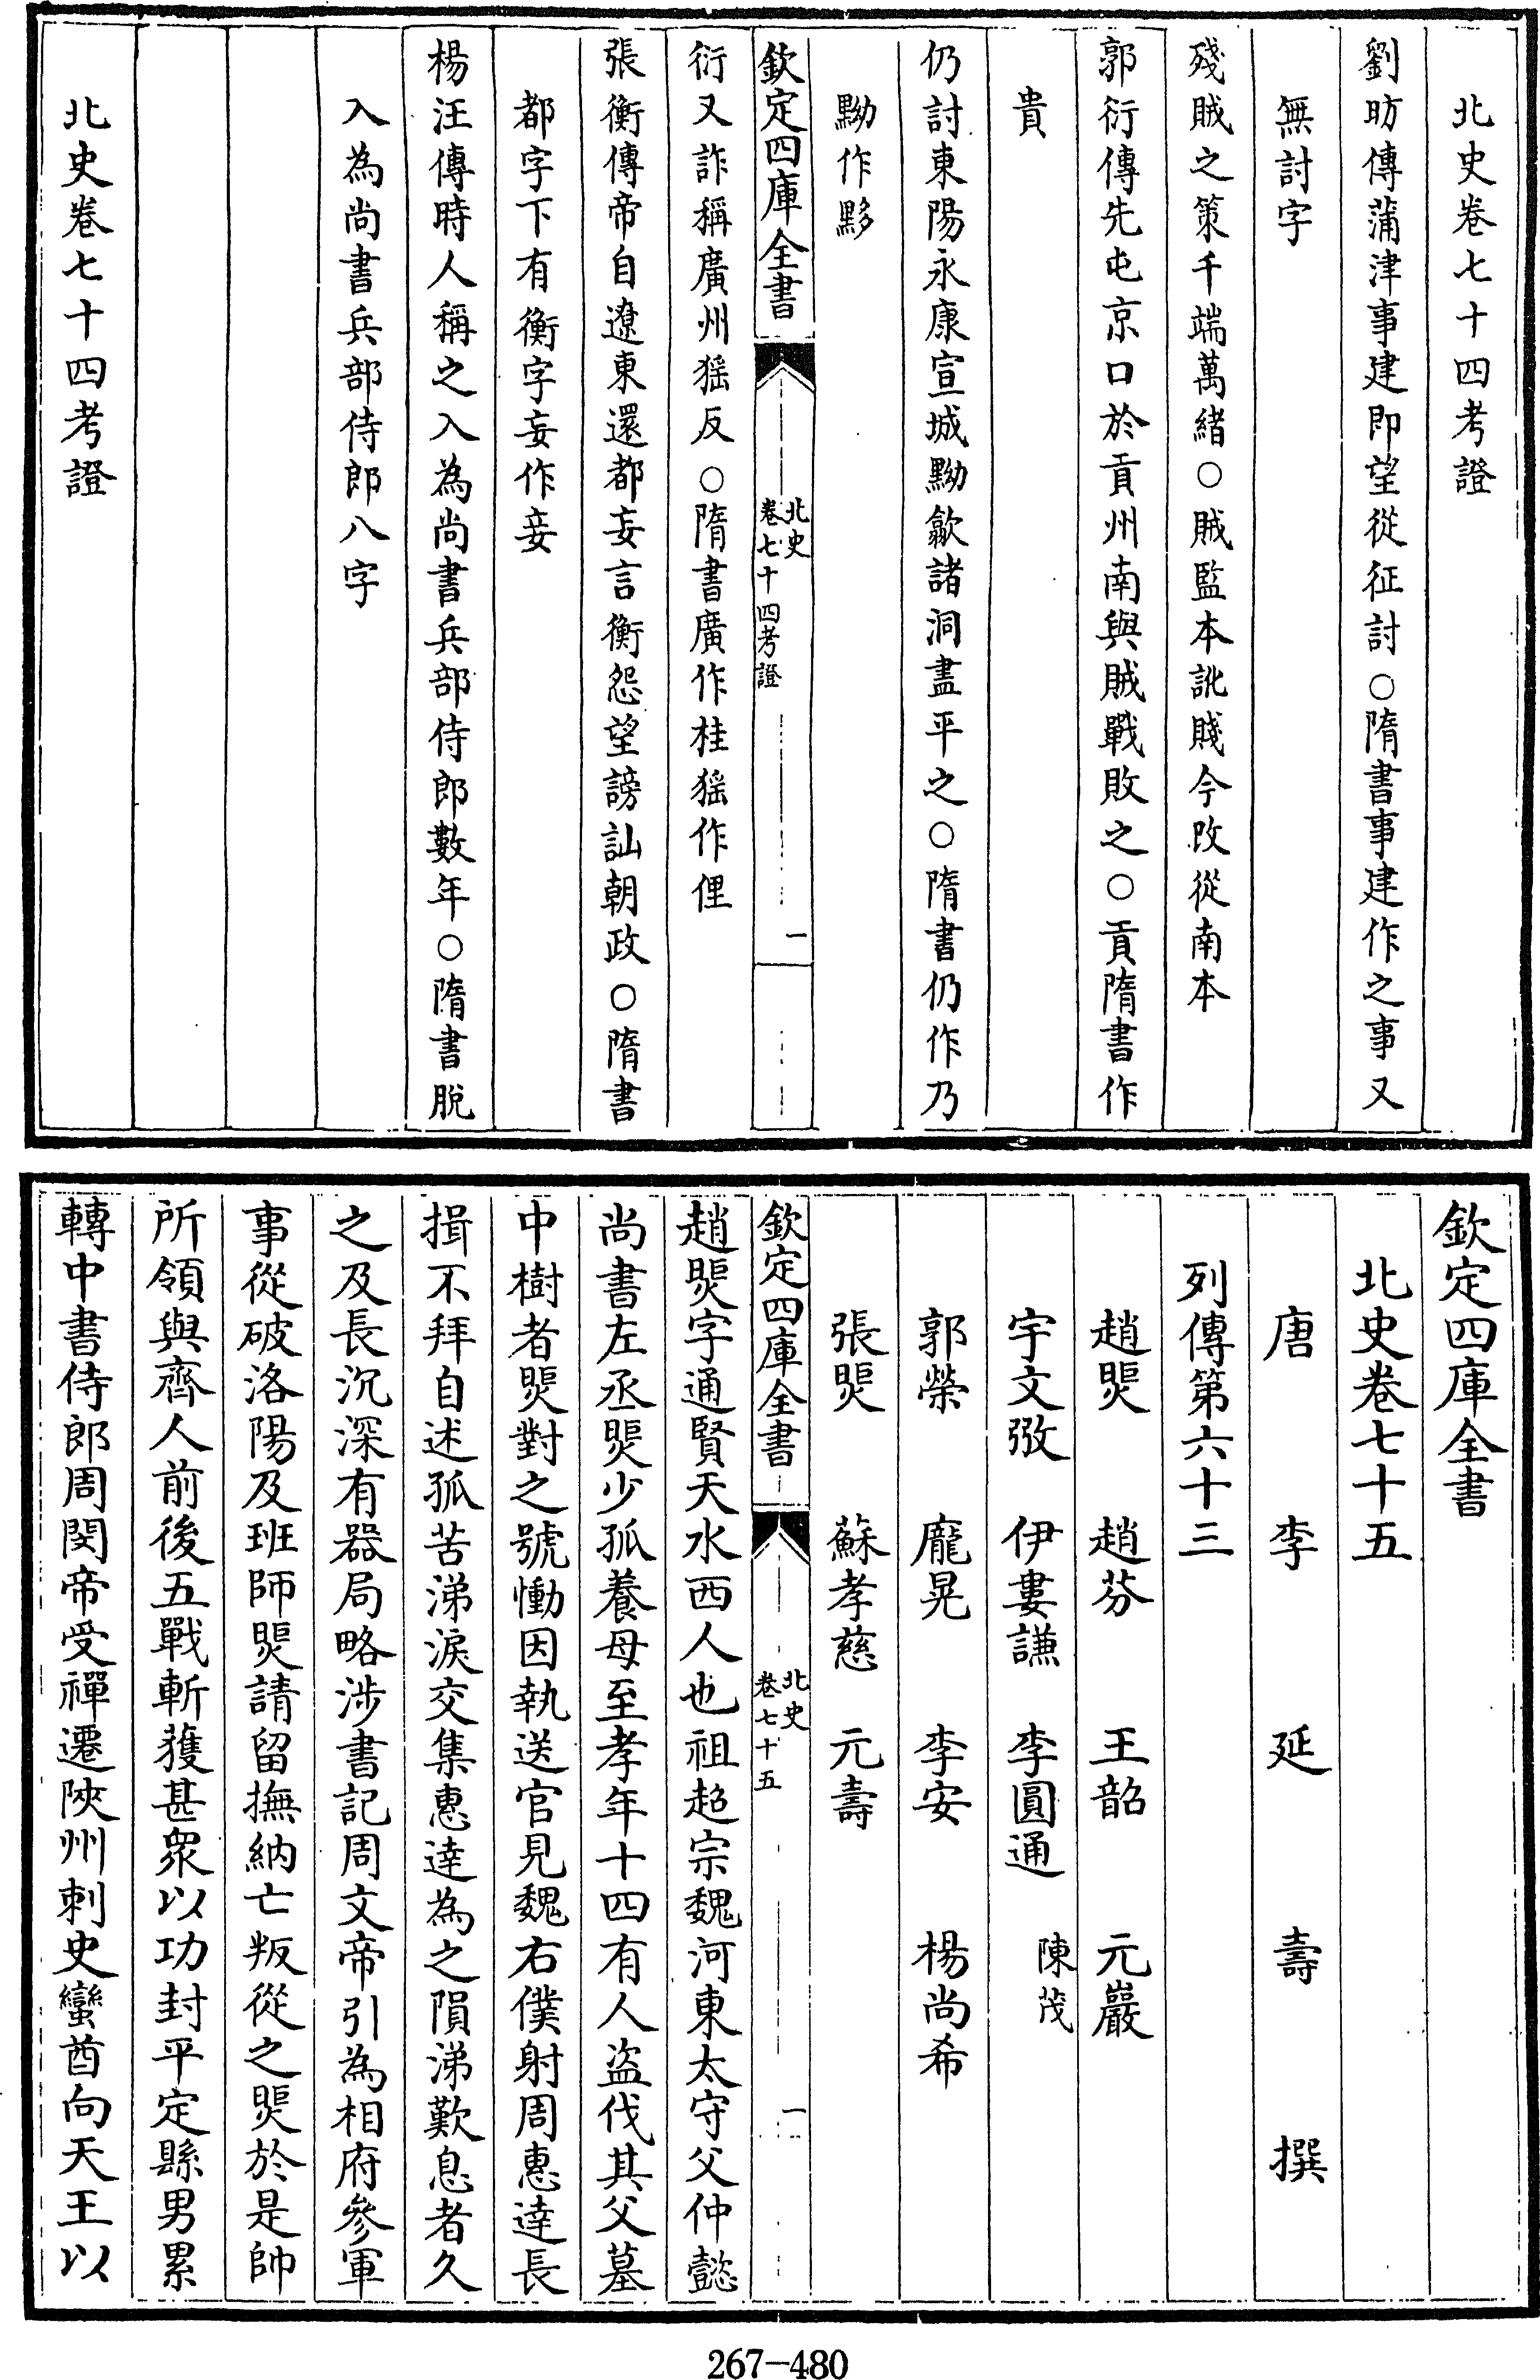 北史卷七十四考證
劉昉傳蒲津事建即望從征討○隋書事建作之事又
無討字
殘賊之策千端萬緒○賊監本訛賤今改從南本
郭衍傳先屯京口於貢州南與賊戰敗之○貢隋書作
貴
仍討東陽永康宣城黝歙諸洞盡平之○隋書仍作乃
黝作黟
欽定四庫全書
北史
卷七十四考證
一
衍又詐稱廣州猺反○隋書廣作桂猺作俚
張衡傳帝自遼東還都妄言衡怨望謗訕朝政○隋書
都字下有衡字妄作妾
楊汪傳時人稱之入為尚書兵部侍郎數年○隋書脫
入為尚書兵部侍郎八字
北史卷七十四考證
欽定四庫全書
北史卷七十五
唐 李 延 壽 撰
列傳第六十三
趙煚 趙芬 王韶 元巖
宇文㢸 伊婁謙 李圓通 陳茂
郭榮 龐晃 李安 楊尚希
張煚 蘇孝慈 元壽
欽定四庫全書
北史
卷七十五
一
趙煚字通賢天水西人也祖超宗魏河東太守父仲懿
尚書左丞煚少孤養母至孝年十四有人盜伐其父墓
中樹者煚對之號慟因執送官見魏右僕射周惠達長
揖不拜自述孤苦涕淚交集惠達為之隕涕歎息者久
之及長沉深有器局略涉書記周文帝引為相府參軍
事從破洛陽及班師煚請留撫納亡叛從之煚於是帥
所領與齊人前後五戰斬獲甚眾以功封平定縣男累
轉中書侍郎周閔帝受禪遷陝州刺史蠻酋向天王以
267-480